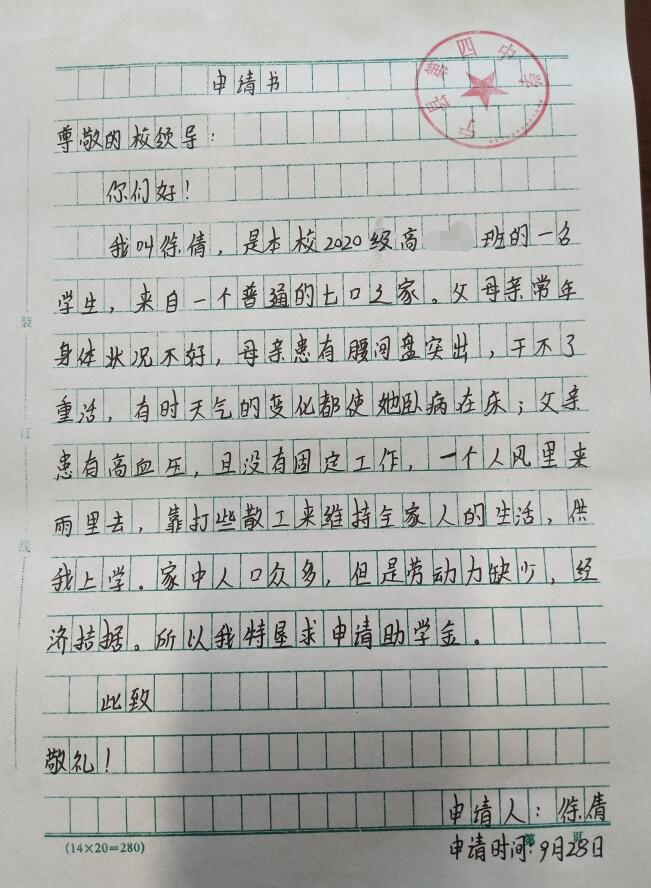 申请书
尊敬的校领导：
你们好！
我叫徐倩，是本校2020级高 班的一名
学生，来自一个普通的七口之家。父母亲常年
身体状况不好，母亲患有腰间盘突出，干不了
重活，有时天气的变化都使她卧病在床；父亲
患有高血压，且没有固定工作，一个人风里来
雨里去，靠打些散工来维持全家人的生活，供
我上学。家中人口众多，但是劳动力缺少，经
济拮据。所以我特垦求申请助学金。
此致
敬礼！
申请人：徐倩
申请时间：9月28日
(14×20=280)
第 页
装
订
线
宁县第四中学